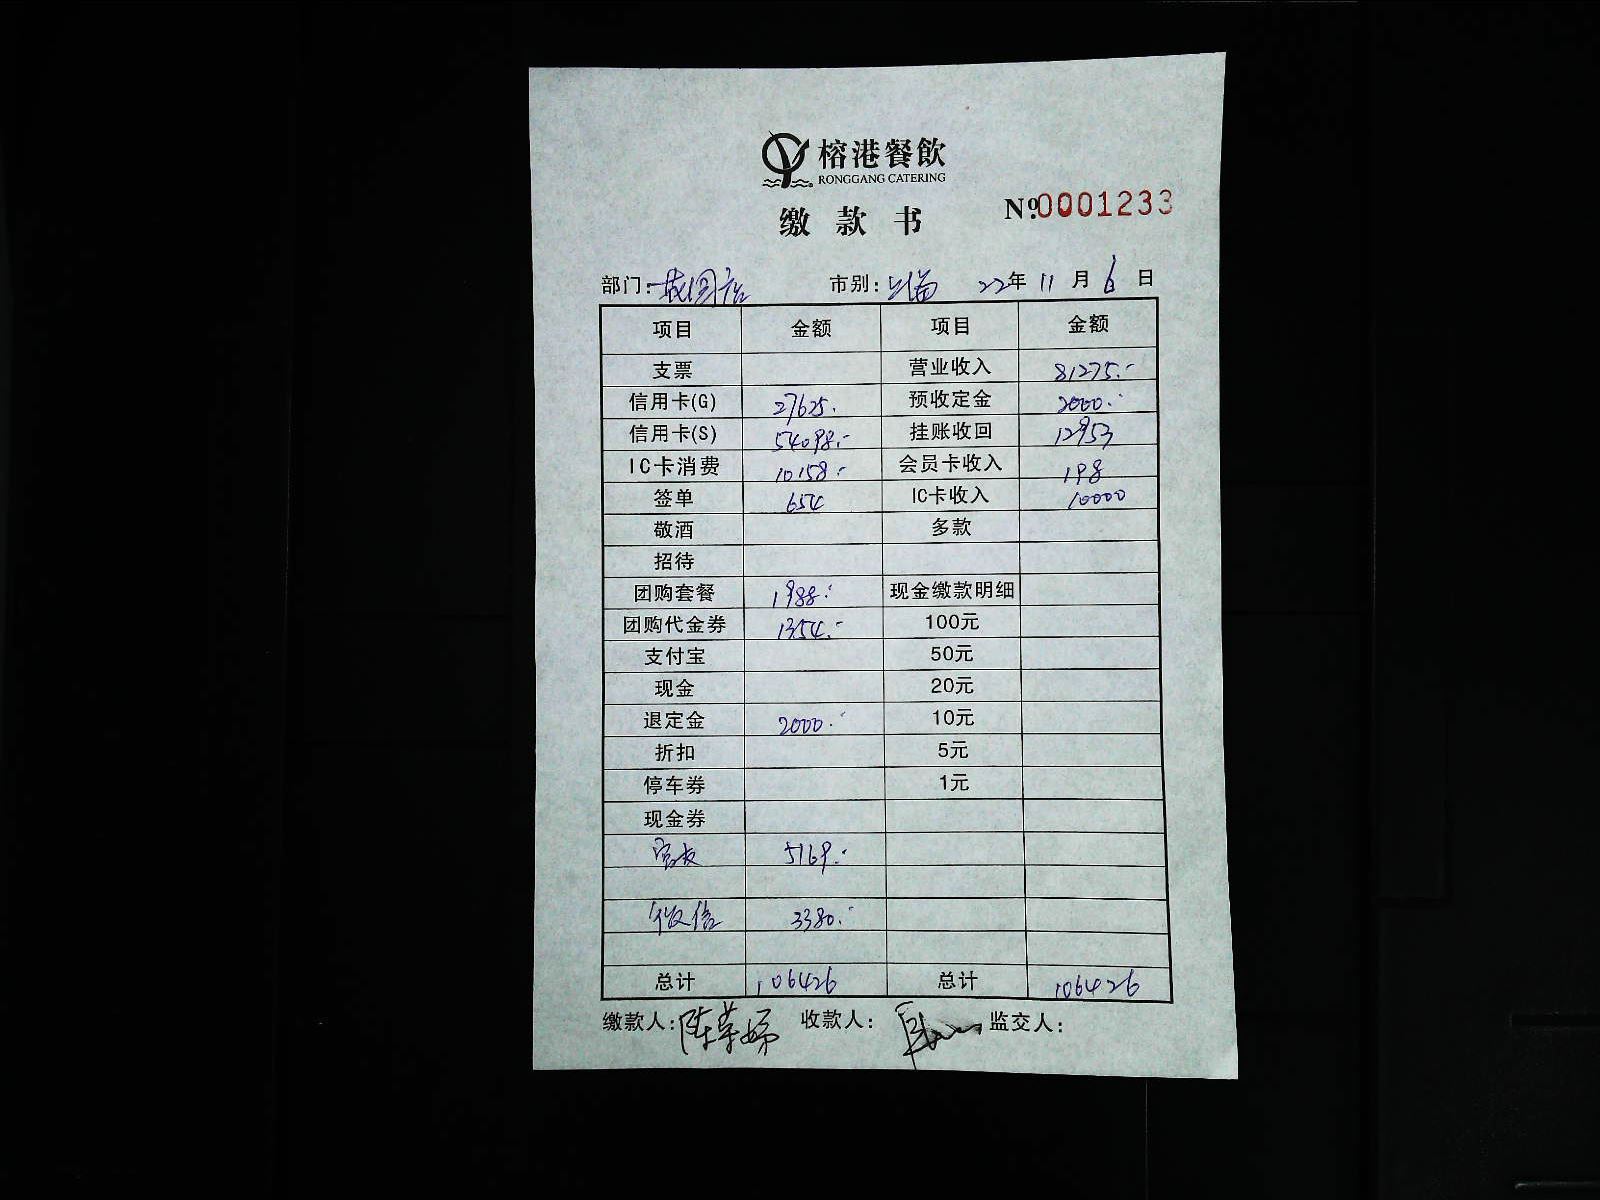 榕港餐飲
RONGGANG CATERING
缴款书 №0001233
部门: 市别: 22年11月6日
项目 金额 项目 金额
支票 营业收入 81275.-
信用卡(G) 27625. 预收定金 2000.-
信用卡(S) 54098.- 挂账收回 12953
IC卡消费 10158.- 会员卡收入 198
签单 654 IC卡收入 10000
敬酒 多款
招待
团购套餐 1988.- 现金缴款明细
团购代金券 1354.- 100元
支付宝 50元
现金 20元
退定金 2000.- 10元
折扣 5元
停车券 1元
现金券
5169.-
微信 3380.-
总计 106426 总计 106426
缴款人: 收款人: 监交人: